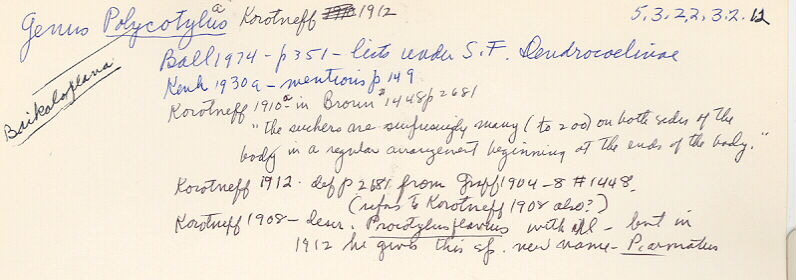 Genus Polycotylus a Korotneff 1910 1912 5.3.22.3.2.12
Baikaloplana
Ball 1974 - p 351 - lists under S.F. Dendrocoelinae
Kenk 1930a - mentions p 149
Korotneff 1910a in Bronn #1448 p 2681
"the suckers are surprisingly many (to 200) on both sides of the
body in a regular arrangement beginning at the ends of the body."
Korotneff 1912. def p 2681 from Graff 1904-8 #1448.
(refers to Korotneff 1908 also?)
Korotneff 1908 - descr. Procotylus flavus with ill - but in
1912 he gives this sp. new name - P. armatus